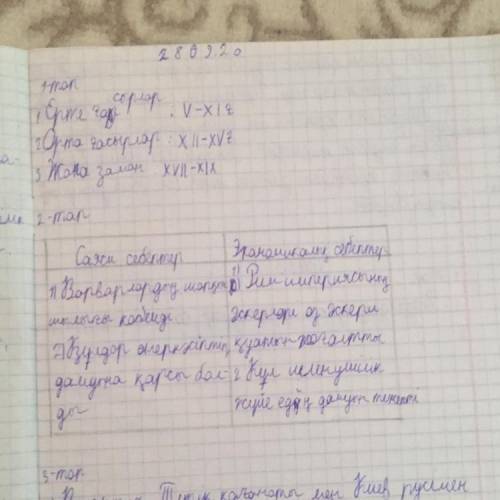 28 09.20
1-топ
1 Ерте ғасырлар : V-XI ғ
2 Орта ғасырлар : XII-XV ғ
3 Жаңа заман XVII-XIX
2-топ
Саяси себептер
Экономикалық себептер
1) Варварлардың шапқын
шылығы көбейді
2) Құлдар өнеркәсіптің
дамуына қарсы бол-
ды
1) Рим империясының
әскерлері өз әскери
қуатын жоғалтты
2 Құл иеленушілік
жүйе елдің дамуын тежеді
3-топ
Түрік қағанаты мен Киев русімен